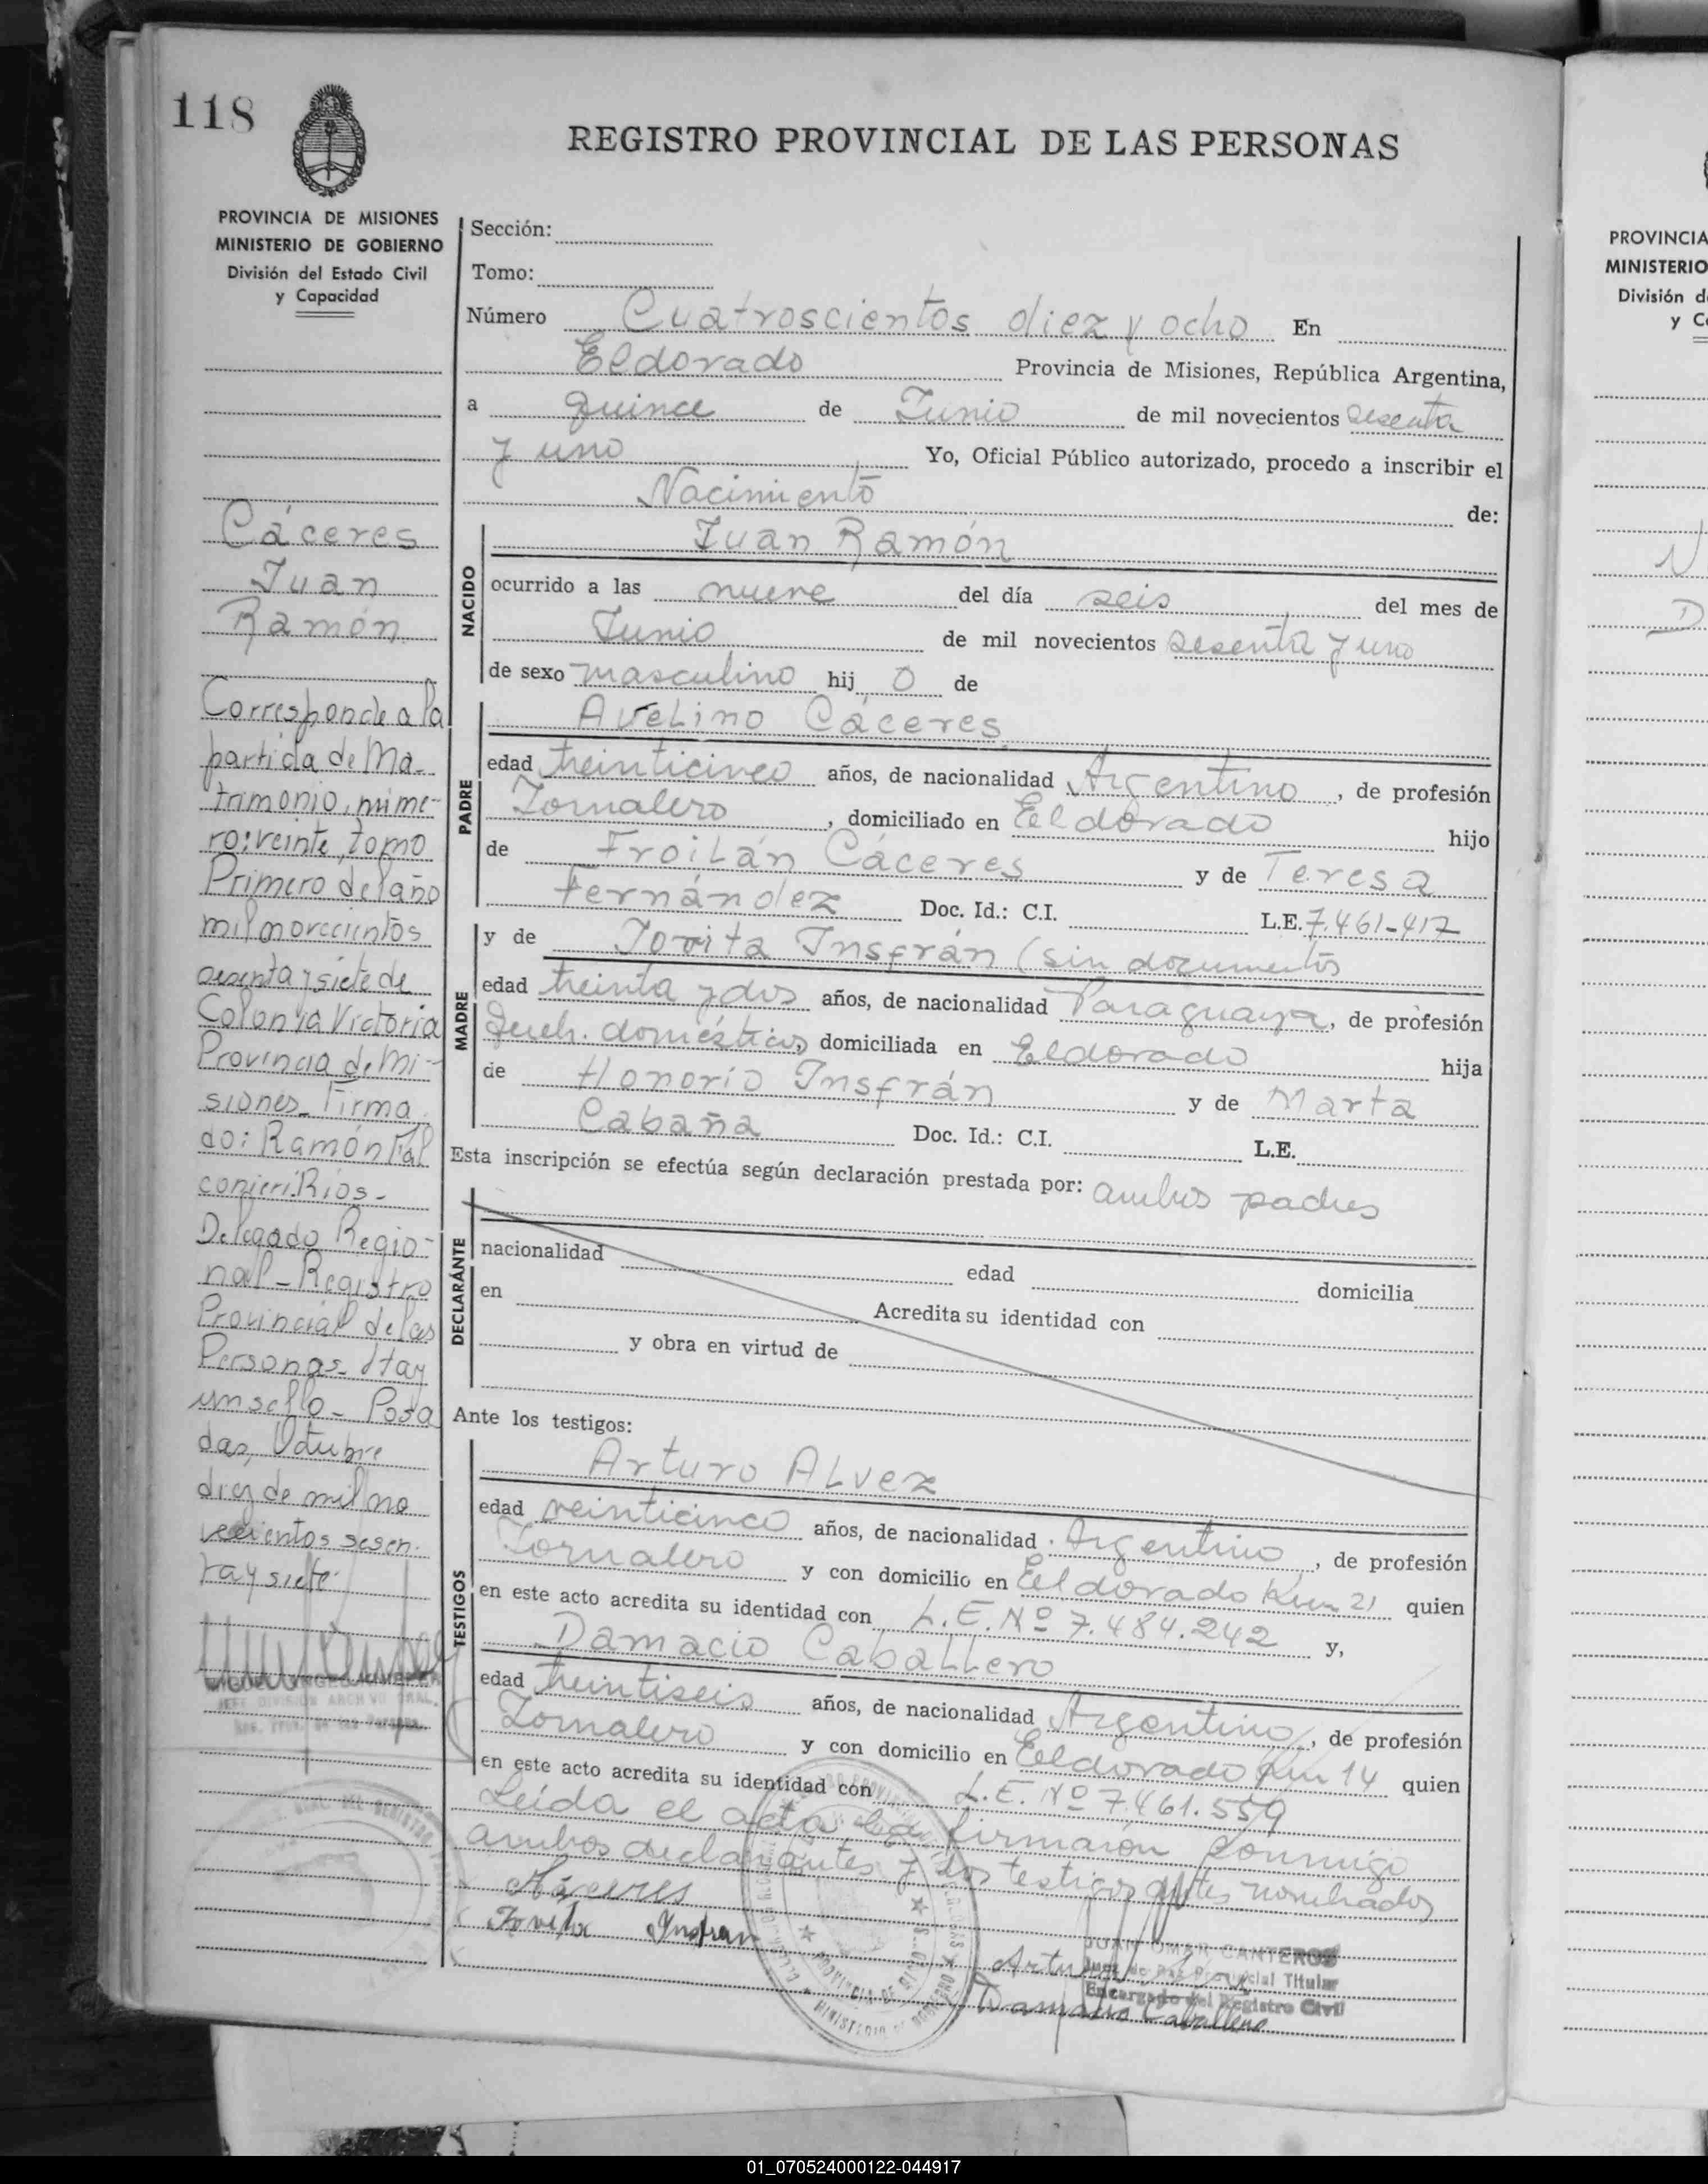 118
REGISTRO PROVINCIAL DE LAS PERSONAS
PROVINCIA DE MISIONES
MINISTERIO DE GOBIERNO
División del Estado Civil
y Capacidad
Cáceres
Juan
Ramón
Corresponde a la
partida de Ma-
trimonio, núme-
ro: veinte, tomo
Primero del año
mil novecientos
sesenta y siete de
Colonia Victoria
Provincia de Mi-
siones. Firma
do: Ramón
Ríos-
Delegado Regio-
nal - Registro
Provincial de las
Personas - Hay
un sello - Posa
das, Octubre
diez de mil no
vecientos sesen-
ta y siete.
JEFE DIVISION ARCHIVO GRAL.
Reg. Prov. de las Personas
Sección:
Tomo:
Número Cuatroscientos diez y ocho En
Eldorado Provincia de Misiones, República Argentina,
a quince de Junio de mil novecientos sesenta
y uno Yo, Oficial Público autorizado, procedo a inscribir el
Nacimiento de:
NACIDO
Juan Ramón
ocurrido a las nueve del día seis del mes de
Junio de mil novecientos sesenta y uno
de sexo masculino hij o de
PADRE
Avelino Cáceres
edad treinticinco años, de nacionalidad Argentino, de profesión
Jornalero, domiciliado en Eldorado hijo
de Froilán Cáceres y de Teresa
Fernández Doc. Id.: C.I. L.E. 7.461-417
MADRE
y de Jovita Insfrán (sin documentos
edad treinta y dos años, de nacionalidad Paraguaya, de profesión
Queh. domésticos, domiciliada en Eldorado hija
de Honorio Insfrán y de Marta
Cabaña Doc. Id.: C.I. L.E.
Esta inscripción se efectúa según declaración prestada por: ambos padres
DECLARANTE
nacionalidad edad domicilia
en Acredita su identidad con
y obra en virtud de
Ante los testigos:
TESTIGOS
Arturo Alvez
edad veinticinco años, de nacionalidad Argentino, de profesión
Jornalero y con domicilio en Eldorado Km 21 quien
en este acto acredita su identidad con L.E. Nº 7.484.242 y,
Damacio Caballero
edad treintiseis años, de nacionalidad Argentino, de profesión
Jornalero y con domicilio en Eldorado Km 14 quien
en este acto acredita su identidad con L.E. Nº 7.461.559
Leída el acta la firmarón conmigo
ambos declarantes y los testigos antes nombrados
Cáceres
Jovita Insfran
JUAN OMAR CANTEROS
Juez de Paz Provincial Titular
Encargado del Registro Civil
Damacio Caballero
PROVINCIA
MINISTERIO
División d
y C
01_070524000122-044917